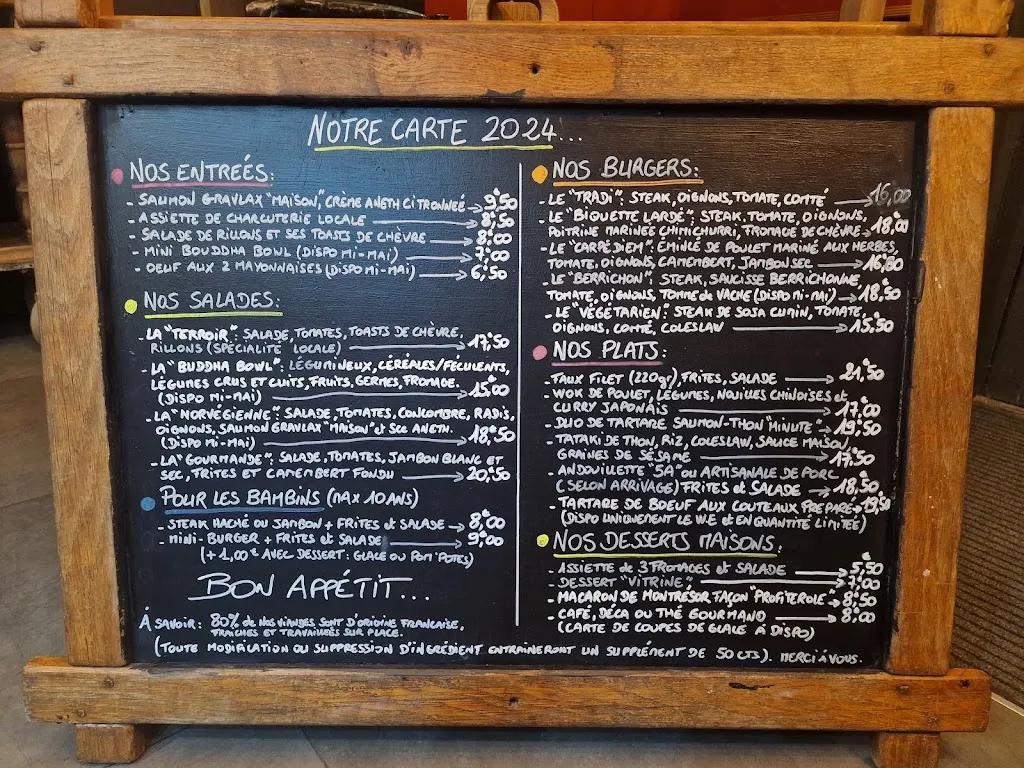 NOTRE CARTE 2024...
NOS ENTREÉS:
- SAUMON GRAVLAX "MAISON", CRÈME ANETH CITRONNEÉ → 9,50
- ASSIETTE DE CHARCUTERIE LOCALE → 8,50
- SALADE DE RILLONS ET SES TOASTS DE CHÈVRE → 8,00
- MINI BOUDDHA BOWL (DISPO MI-MAI) → 7,00
- OEUF AUX 2 MAYONNAISES (DISPO MI-MAI) → 6,50
NOS SALADES:
LA "TERROIR": SALADE, TOMATES, TOASTS DE CHÈVRE,
RILLONS (SPÉCIALITÉ LOCALE) → 17,50
- LA "BUDDHA BOWL": LÉGUMINEUX, CÉRÉALES/FÉCULENTS,
LÉGUMES CRUS ET CUITS, FRUITS, GERMES, FROMAGE.
(DISPO MI-MAI) → 15,00
- LA "NORVÉGIENNE": SALADE, TOMATES, CONCOMBRE, RADIS,
OIGNONS, SAUMON GRAVLAX "MAISON" et SCE ANETH.
(DISPO MI-MAI) → 18,50
- LA "GOURMANDE": SALADE, TOMATES, JAMBON BLANC ET
SEC, FRITES ET CAMEMBERT FONDU → 20,50
POUR LES BAMBINS (MAX 10 ANS)
- STEAK HACHÉ OU JAMBON + FRITES et SALADE → 8,00
- MINI-BURGER + FRITES et SALADE → 9,00
(+ 1,00€ AVEC DESSERT: GLACE OU POM'POTES)
BON APPÉTIT...
À SAVOIR: 80% de NOS VIANDES SONT D'ORIGINE FRANCAISE,
FRAICHES ET TRAVAILLÉES SUR PLACE.
NOS BURGERS:
- LE "TRADI": STEAK, OIGNONS, TOMATE, COMTÉ → 16,00
- LE "BIQUETTE LARDÉ": STEAK, TOMATE, OIGNONS,
POITRINE MARINÉE CHIMICHURRI, FROMAGE DE CHÈVRE → 18,00
- LE "CARPÉDIEM": ÉMINCÉ DE POULET MARINÉ AUX HERBES,
TOMATE, OIGNONS, CAMEMBERT, JAMBON SEC → 16,80
- LE "BERRICHON": STEAK, SAUCISSE BERRICHONNE,
TOMATE, OIGNONS, TOMME de VACHE (DISPO MI-MAI) → 18,50
- LE "VÉGÉTARIEN": STEAK DE SOJA CUMIN, TOMATE,
OIGNONS, COMTÉ, COLESLAW → 15,50
NOS PLATS:
- FAUX FILET (220gr), FRITES, SALADE → 21,50
- WOK DE POULET, LÉGUMES, NOUILLES CHINOISES et
CURRY JAPONAIS → 17,00
- DUO DE TARTARE SAUMON-THON "MINUTE" → 19,50
- TATAKI DE THON, RIZ, COLESLAW, SAUCE MAISON,
GRAINES DE SÉSAME → 17,50
- ANDOUILLETTE "5A" OU ARTISANALE DE PORC
(SELON ARRIVAGE) FRITES et SALADE → 18,50
- TARTARE DE BOEUF AUX COUTEAUX PREPARÉ → 19,50
(DISPO UNIQUEMENT LE W.E et EN QUANTITÉ LIMITÉE)
NOS DESSERTS MAISONS:
- ASSIETTE de 3 FROMAGES et SALADE → 5,50
- DESSERT "VITRINE" → 7,00
- MACARON DE MONTRÉSOR FAÇON "PROFITEROLE" → 8,50
- CAFÉ, DÉCA OU THÉ GOURMAND → 8,00
(CARTE DE COUPES DE GLACE À DISPO)
(TOUTE MODIFICATION OU SUPPRESSION D'INGRÉDIENT ENTRAINERONT UN SUPPLÉMENT DE 50 CTS). MERCI À VOUS.